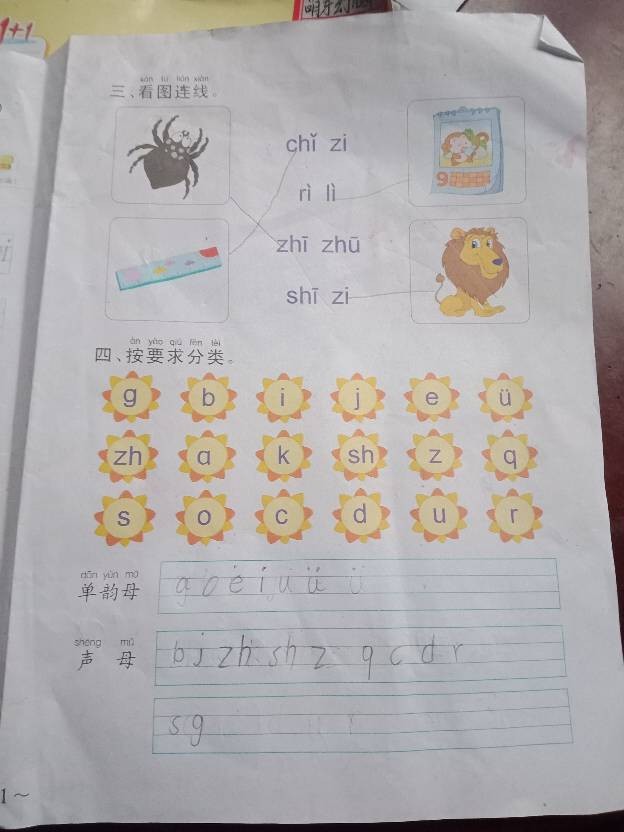 1+1
kàn tú lián xiàn
三、看图连线。
chǐ zi
rì lì
9
zhī zhū
shī zi
àn yāo qiú fēn lèi
四、按要求分类。
g b i j e ü
zh ɑ k sh z q
s o c d u r
dān yùn mǔ
单韵母
a o e i u ü
shēng mǔ
声 母
b j zh sh z q c d r
s g
1～